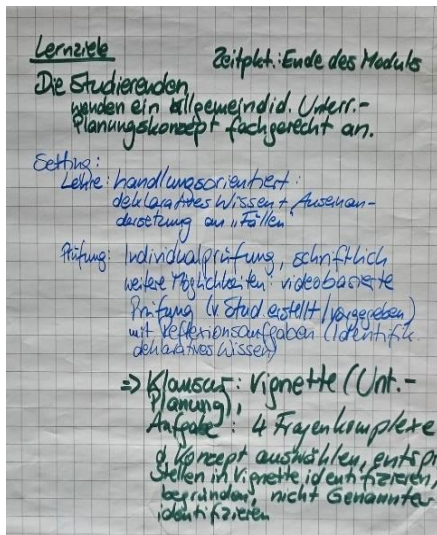 Lernziele
Zeitpkt.: Ende des Moduls
Die Studierenden
wenden ein allgemeindid. Unterr.-
Planungskonzept fachgerecht an.
Setting:
Lehre: handlungsorientiert:
deklaratives Wissen + Auseinan-
dersetzung an „Fällen"
Prüfung: Individualprüfung, schriftlich
weitere Möglichkeiten: videobasierte
Prüfung (v. Stud. erstellt/vorgegeben)
mit Reflexionsaufgaben (Identifik.
deklaratives Wissen)
=> Klausur: Vignette (Unt.-
Planung),
Aufgabe: 4 Fragenkomplexe
Konzept auswählen, entspr
Stellen in Vignette identifizieren,
begründen, nicht Genannte
identifizieren